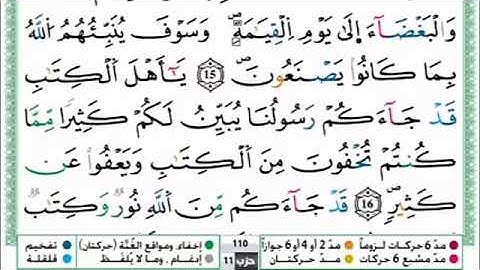 وَالْبَغْضَآءَ إِلَىٰ يَوْمِ الْقِيَٰمَةِۖ وَسَوْفَ يُنَبِّئُهُمُ اللَّهُ
بِمَا كَانُوا۟ يَصْنَعُونَۖ 15 يَٰٓأَهْلَ الْكِتَٰبِ
قَدْ جَآءَكُمْ رَسُولُنَا يُبَيِّنُ لَكُمْ كَثِيرًا مِّمَّا
كُنتُمْ تُخْفُونَ مِنَ الْكِتَٰبِ وَيَعْفُوا۟ عَن
كَثِيرٍۖ 16 قَدْ جَآءَكُم مِّنَ اللَّهِ نُورٌ وَكِتَٰبٌ
مدّ 6 حركات لزوماً مدّ 2 أو 4 أو 6 جوازاً 110 إخفاء ومواقع الغُنَّة (حركتان) تفخيم
مدّ مشبع 6 حركات مدّ حركتان حزب 11 إدغام، وما لا يُلفَظ قلقلة